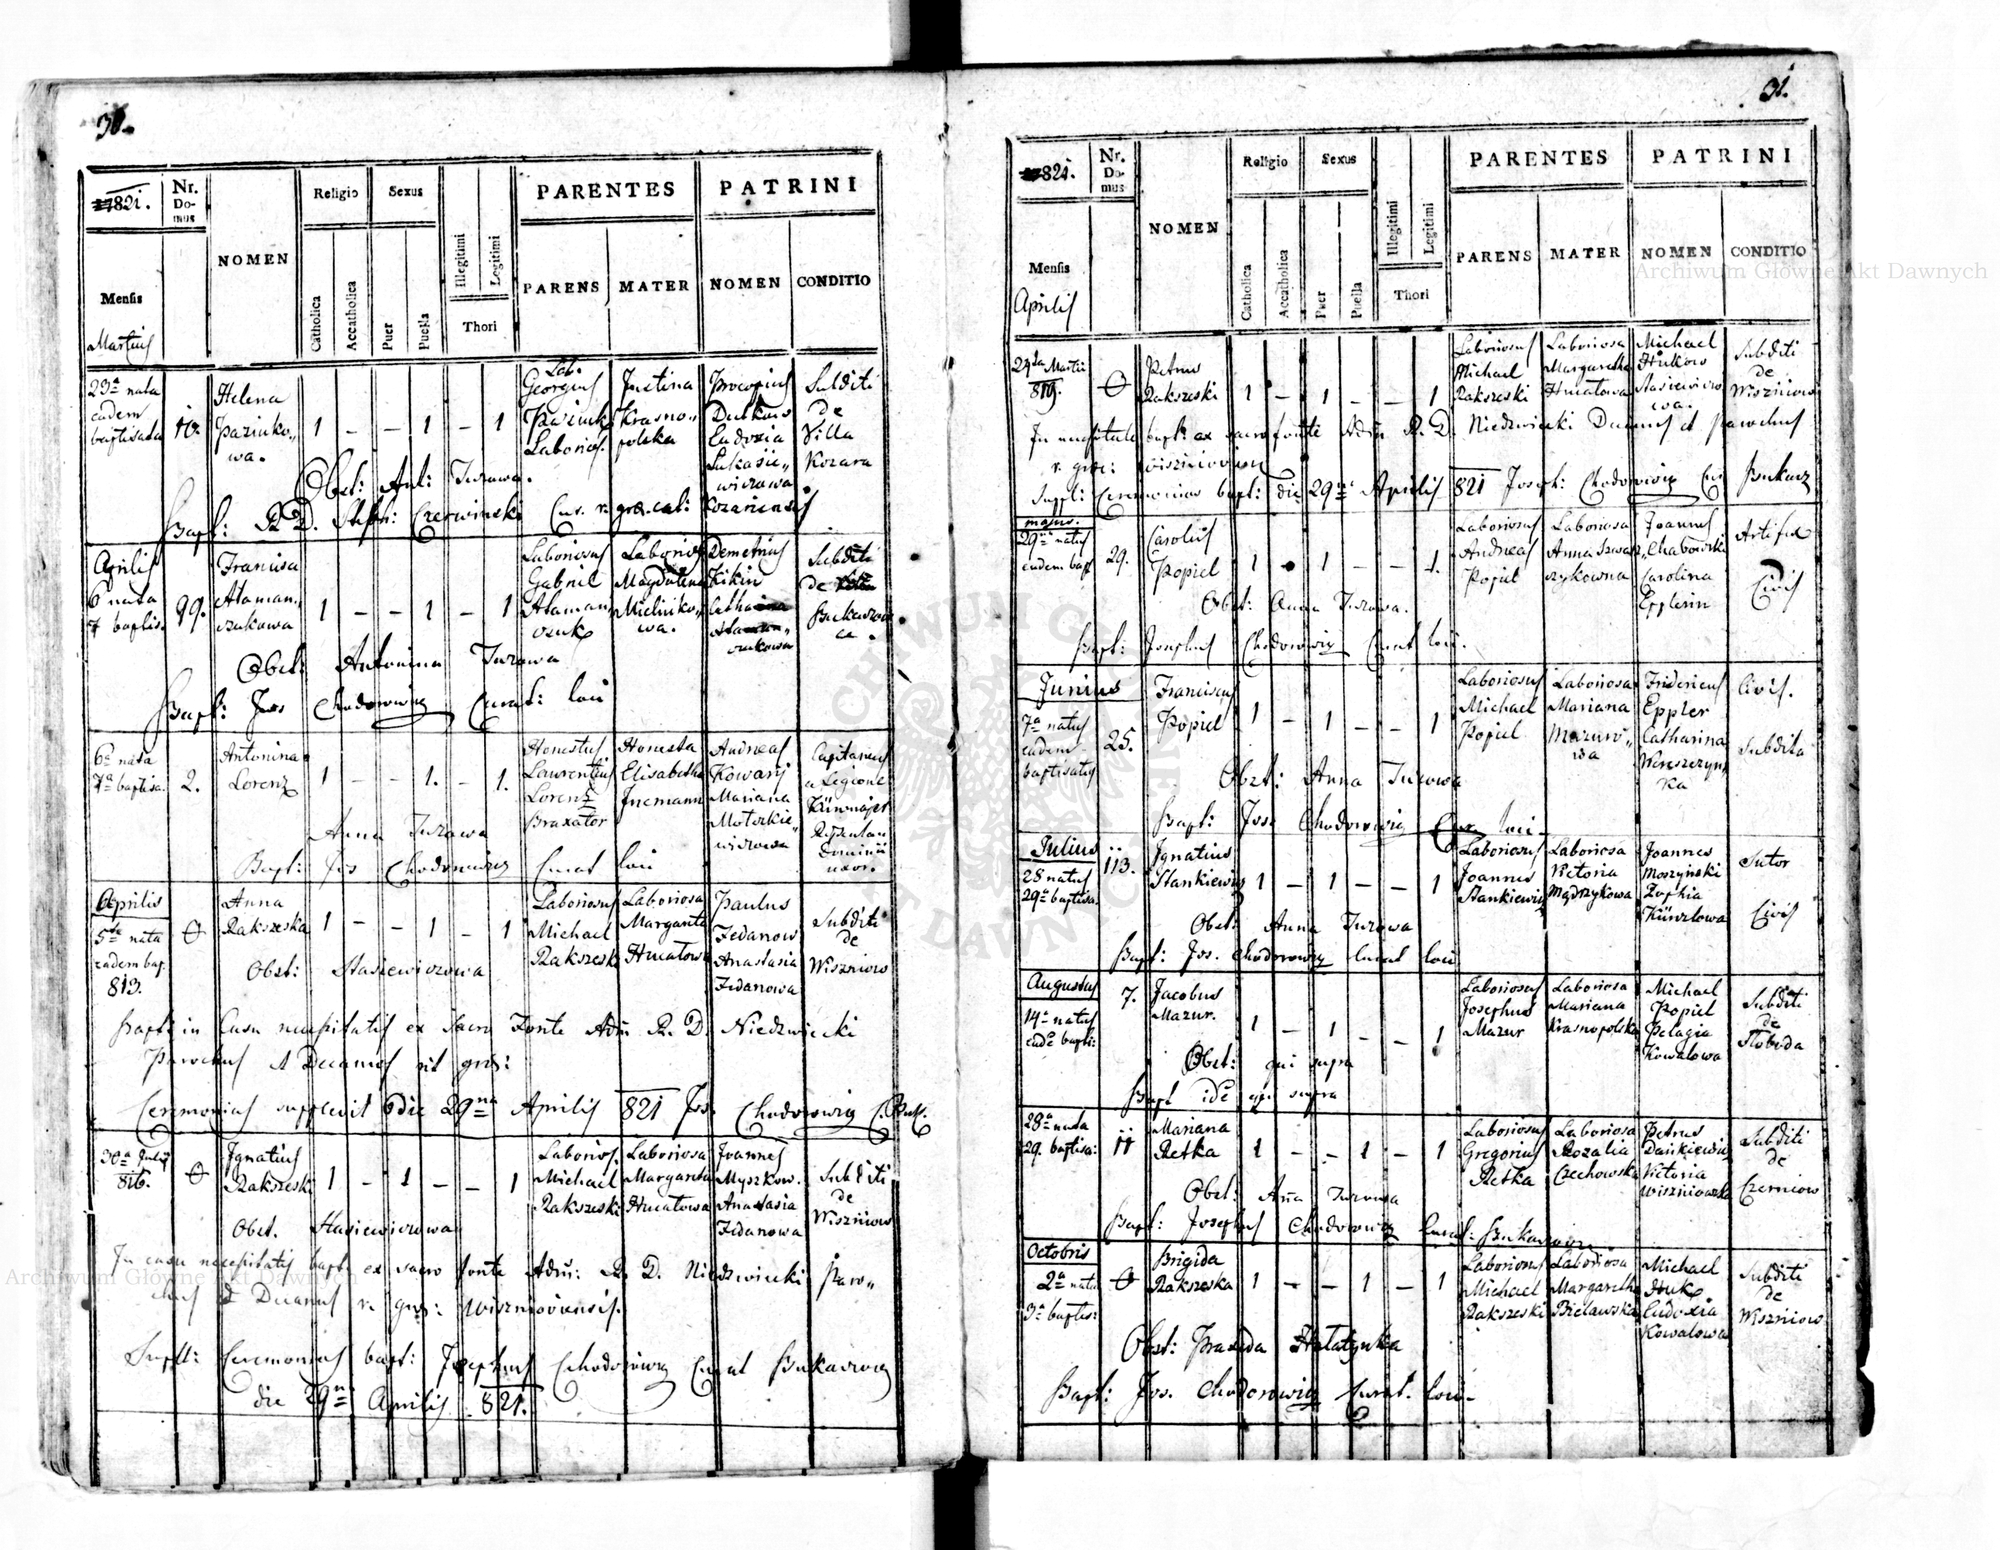 30.
1821.
Nr. Domus
NOMEN
Religio
Sexus
Catholica
Accatholica
Puer
Puella
Illegitimi
Legitimi
Thori
PARENTES
PATRINI
PARENS
MATER
NOMEN
CONDITIO
Mensis
Martius
23a nata
eadem
baptisata
10.
Helena
Paziuko„
wa.
1 – – 1 – 1
Lab.
Georgius
Paziuk
Laborios.
Justina
Krasno„
polska
Procopius
Dutkow
Eudoxia
Lukasie„
wiczowa
Subditi
de
Villa
Kozara
Obst: Ant: Turowa.
Bapt: R. D. Steph: Czerwinski Cur. r. gr. cat: Kozariensis
Aprilis
6 nata
7 baptis.
99.
Francisca
Ataman„
czukowa
1 – – 1 – 1
Laboriosus
Gabriel
Ataman
czuk
Laborios
Magdalena
Mielniko„
wa.
Demetrius
Kikin
Catharina
Ataman„
czukowa
Subditi
de
Bukaczow
ce.
Obst: Antonina Turowa
Bapt: Jos Chodorowicz Curat: loci
6a nata
7a baptisa.
2.
Antonina
Lorenz
1 – – 1. – 1.
Honestus
Laurentius
Lorenz
Braxator
Honesta
Elisabetha
Jnemann
Andreas
Kowarz
Mariana
Motozkie„
wiczowa
Capitaneus
a Legione
Dominii
uxor.
Anna Turowa
Bapt: Jos Chodorowicz Curat loci
Aprilis
5ta nata
eadem bap.
813.
0
Anna
Rakszeska
1 – – 1 – 1
Laboriosus
Michael
Rakszeski
Laboriosa
Margareta
Hnatowa
Paulus
Fedanow
Anastasia
Fedanowa
Subditi
de
Wiszniow
Obst: Stasiewiczowa
Bapt: in Casu necessitatis ex Sacro Fonte Adm R. D. Niedzwiecki
Parochus et Decanus rit grc:
Ceremonias supplevit die 29na Aprilis 821 Jos. Chodorowicz C. Buk.
30a Julij
816.
0
Ignatius
Rakszeski
1 – 1 – – 1
Laborios
Michael
Rakszeski
Laboriosa
Margareta
Hnatowa
Joannes
Myszkow.
Anastasia
Fedanowa
Subditi
de
Wiszniow
Obst. Stasiewiczowa
In casu necessitatis bapt. ex sacro fonte Adm: R. D. Niedzwiecki Paro„
chus et Decanus r. grc: Wiszniowiensis.
Supl: Ceremonias bapt: Josephus Chodorowicz Curat Bukaczow
die 29na Aprilis 821.
31.
1821.
Nr. Domus
NOMEN
Religio
Sexus
Catholica
Accatholica
Puer
Puella
Illegitimi
Legitimi
Thori
PARENTES
PATRINI
PARENS
MATER
NOMEN
CONDITIO
Mensis
Aprilis
24ta Martii
819.
0
Petrus
Rakszeski
1 – 1 – – 1
Laboriosus
Michael
Rakszeski
Laboriosa
Margaretha
Hnatowa
Michael
Hukow
Stasiewiczo
wa.
Subditi
de
Wiszniow
In necessitate bapt: ex sacro fonte Adm R. D. Niedzwiecki Decanus et Parochus
r. grc: Wiszniovien
Supl: Ceremonias bapt: die 29na Aprilis 821 Joseph: Chodorowicz Cur Bukacz
majus.
29na natus
eadem bapt
29.
Carolus
Popiel
1 – 1 – – 1.
Laboriosus
Andreas
Popiel
Laboriosa
Anna Szwa
czykowna
Joannes
Chabowski
Carolina
Epplerin
Artifex
Civis
Obst: Anna Turowa.
Bapt: Josephus Chodorowicz Curat loci.
Junius
7a natus
eadem
baptisatus
25.
Franciscus
Popiel
1 – 1 – – 1
Laboriosus
Michael
Popiel
Laboriosa
Mariana
Mazuró„
wa
Fridericus
Eppler
Catharina
Wereszczyn„
ka
Civis.
Subdita
Obst: Anna Turowa
Bapt: Jos Chodorowicz Cur loci.
Julius
28 natus
29a baptisa.
113.
Ignatius
Stankiewicz
1 – 1 – – 1
Laboriosus
Joannes
Stankiewicz
Laboriosa
Victoria
Mądrzykowa
Joannes
Moszyński
Zophia
Künzlowa
Sutor
Civis
Obst: Anna Turowa
Bapt: Jos. Chodorowicz Curat loci
Augustus
14a natus
eade bapti:
7.
Jacobus
Mazur.
1 – 1 – – 1
Laboriosus
Josephus
Mazur
Laboriosa
Mariana
Krasnopolska
Michael
Popiel
Pelagia
Kowalowa
Subditi
de
Sloboda
Obst: qui supra
Bapt ide qui supra
28a nata
29. baptisa:
11
Mariana
Retka
1 – – 1 – 1
Laboriosus
Gregorius
Retka
Laboriosa
Rozalia
Czechowska
Petrus
Dańkiewicz
Victoria
Wiszniowska
Subditi
de
Czerniow
Obst: Anna Turowa
Bapt: Josephus Chodorowicz Curat: Bukaczow
Octobris
2a nata
3a baptis:
0
Brigida
Rakszeska
1 – – 1 – 1
Laboriosus
Michael
Rakszeski
Laboriosa
Margaretha
Bielawska
Michael
Huk
Eudoxia
Kowalowa
Subditi
de
Wiszniow
Obst: Praxeda Hatatynka
Bapt: Jos. Chodorowicz Curat. loci
Archiwum Główne Akt Dawnych
Archiwum Główne Akt Dawnych
ARCHIWUM GŁÓWNE AKT DAWNYCH